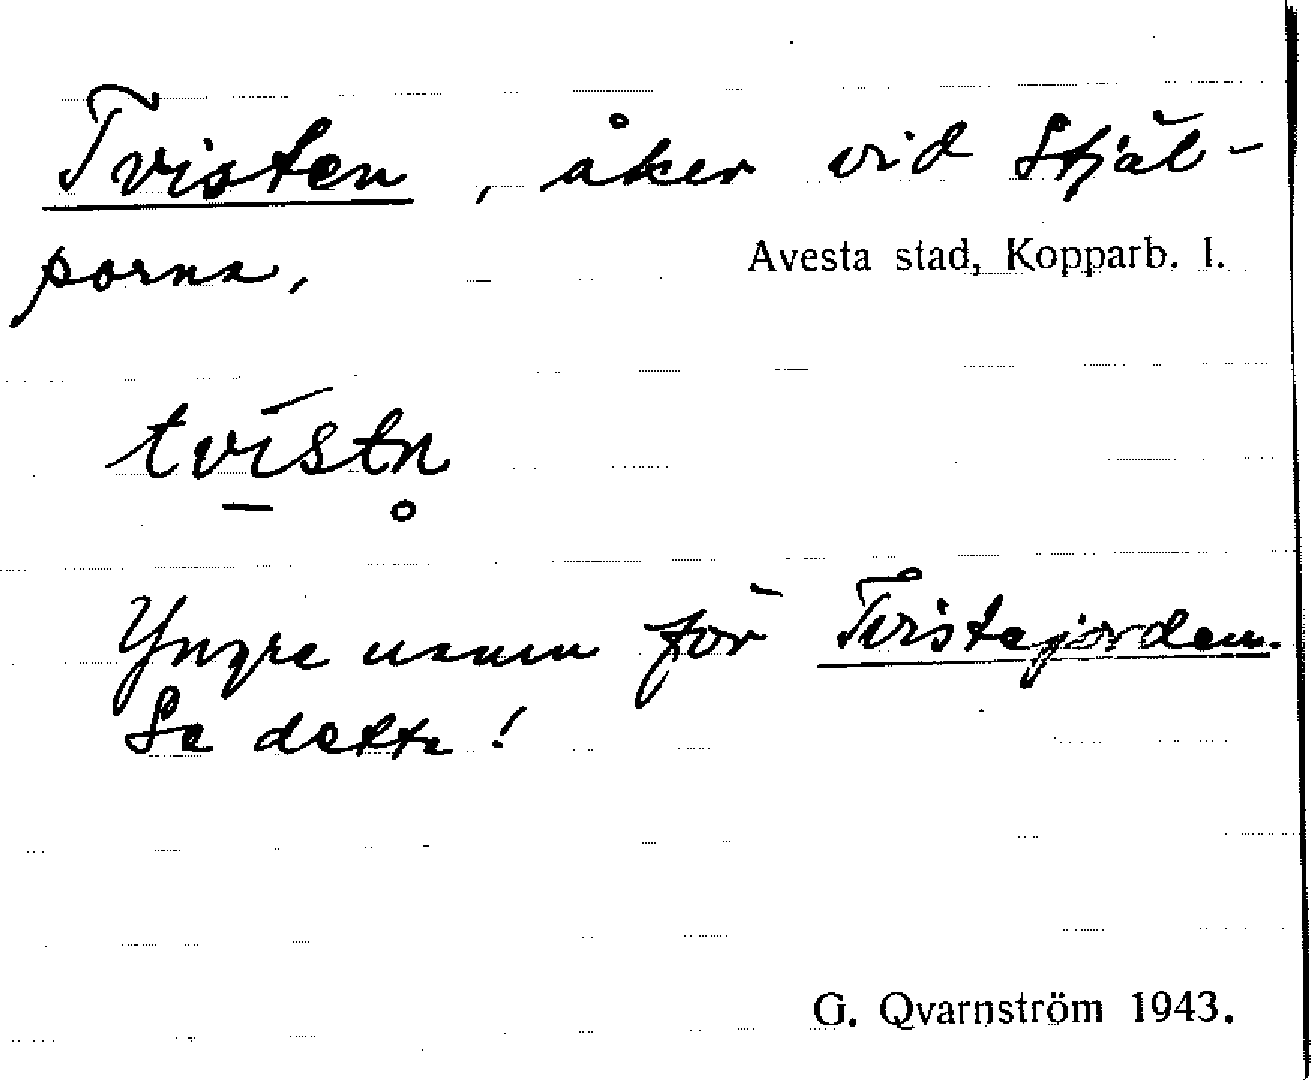 Tvisten, åker vid Stjäl-
porna,
Avesta stad, Kopparb. l.
tvistn̥
Yngre namn för Tvistejorden.
Se detta!
G. Qvarnström 1943.